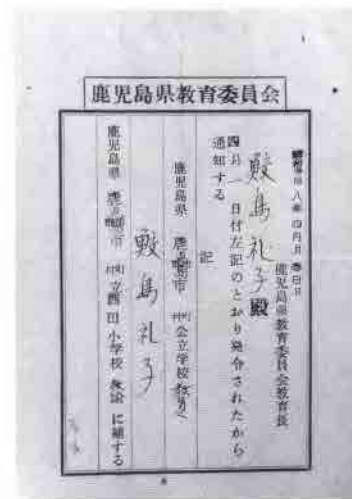 鹿児島県教育委員会
八年四月 日
鹿児島県教育委員会教育長
鮫島礼子殿
四月一日付左記のとおり発令されたから
通知する
記
鹿児島県 鹿児島市 町村 公立学校教員
鮫島礼子
鹿児島県 鹿児島市 町村 立 田小学校 教諭 に補する